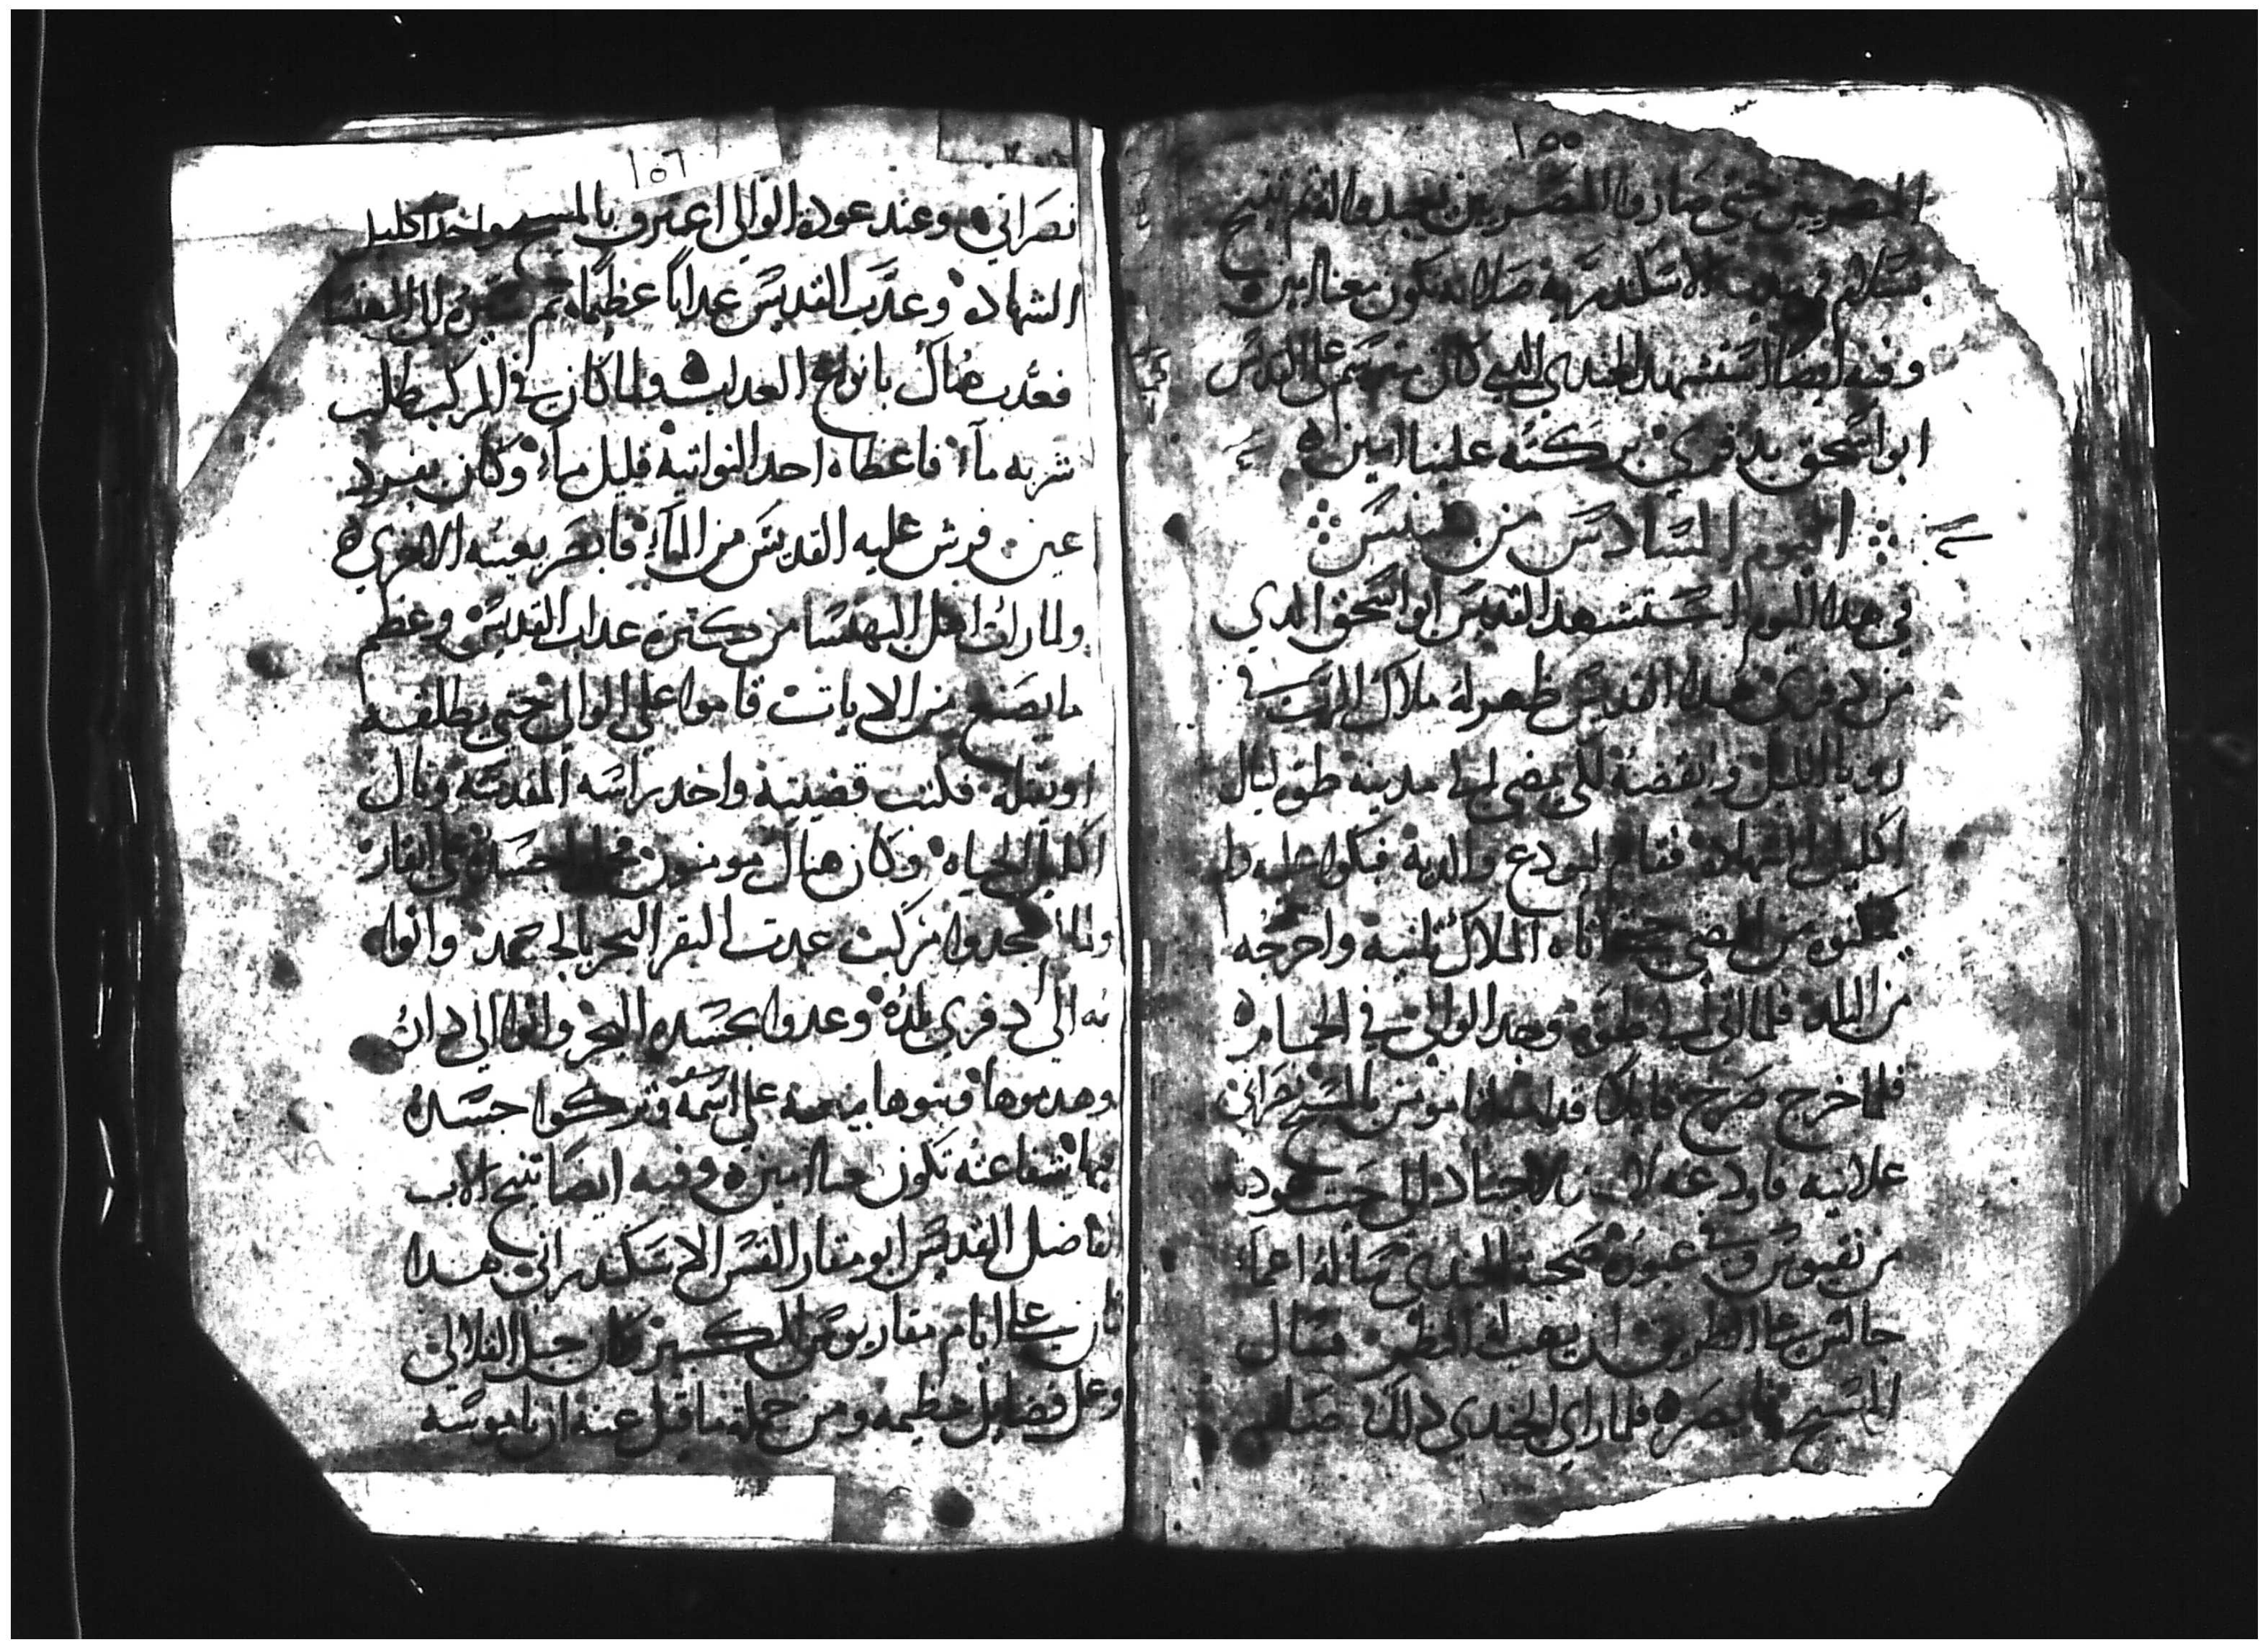 ١٥٥
المصريين حتي صاروا المصريين يعبدوا الله ثم تنيح
بسلام في مدينة الاسكندرية صلاته تكون معنا امين
وفيه ايضا استشهد الجندي الدي كان مترسم علي القديس
ابو اسحق بدفري بركته علينا امين
اليوم السادس من بشنس
في هدا اليوم استشهد القديس ابو اسحق الدي
من دفري هدا القديس ظهر له ملاك الرب في
رويا الليل وايقضه لكي يمضي لها مدينة طو لينال
اكليل الشهادة فقام ليودع والديه فبكوا عليه ولم
يمكنوه من المضي حتي اتاه الملاك تانيه واخرجه
من البلد فلما اتي الي طوه وجد الوالي في الحمام
فلما خرج صرخ قايلا قدامه انا مومن بالمسيح نصراني
علانيه فاودعه لاحد الاجناد الي حيث عودته
من نقيوس وفي عبوره صحبة الجندي سأله اعما
جالس علي الطريق ان يهب له النظر فسال
المسيح فابصره فلما راي الجندي دلك صار
١٥٦
نصراني وعند عودة الوالي اعترف بالمسيح واخد اكليل
الشهادة وعدب القديس عدابا عظيما تم سيره الي البهنسا
فعدب هناك بانواع العداب ولما كان في المركب طلب
شربه مآء فاعطاه احد النواتية قليل مآء وكان بفرد
عين فرش عليه القديس من المآء فابصر بعينه الاخري
ولما راوا اهل البهنسا من كترة عداب القديس وعظم
ما يصنع من الايات قاموا علي الوالي حتي يطلقه
او يقتله فكتب قضيته واخد براسه المقدسه ونال
اكليل الحياه وكان هناك مومنون جسده في
ولما مركب عدت البقر البحر بالجسد واتوا
به الي دفري بلده وعدوا بجسده البحر واتوا الي دان
وهدموها وبنوها بيعه علي اسمه وتركوا جسده
فيها شفاعته تكون معنا امين وفيه ايضا تنيح الاب
الفاضل القديس ابو مقار القس الاسكندراني هدا
كان علي ايام مقاريوس الكبير كان جبل القلالي
وعمل فضايل عظيمه ومن جملة ما قيل عنه ان ناموسه